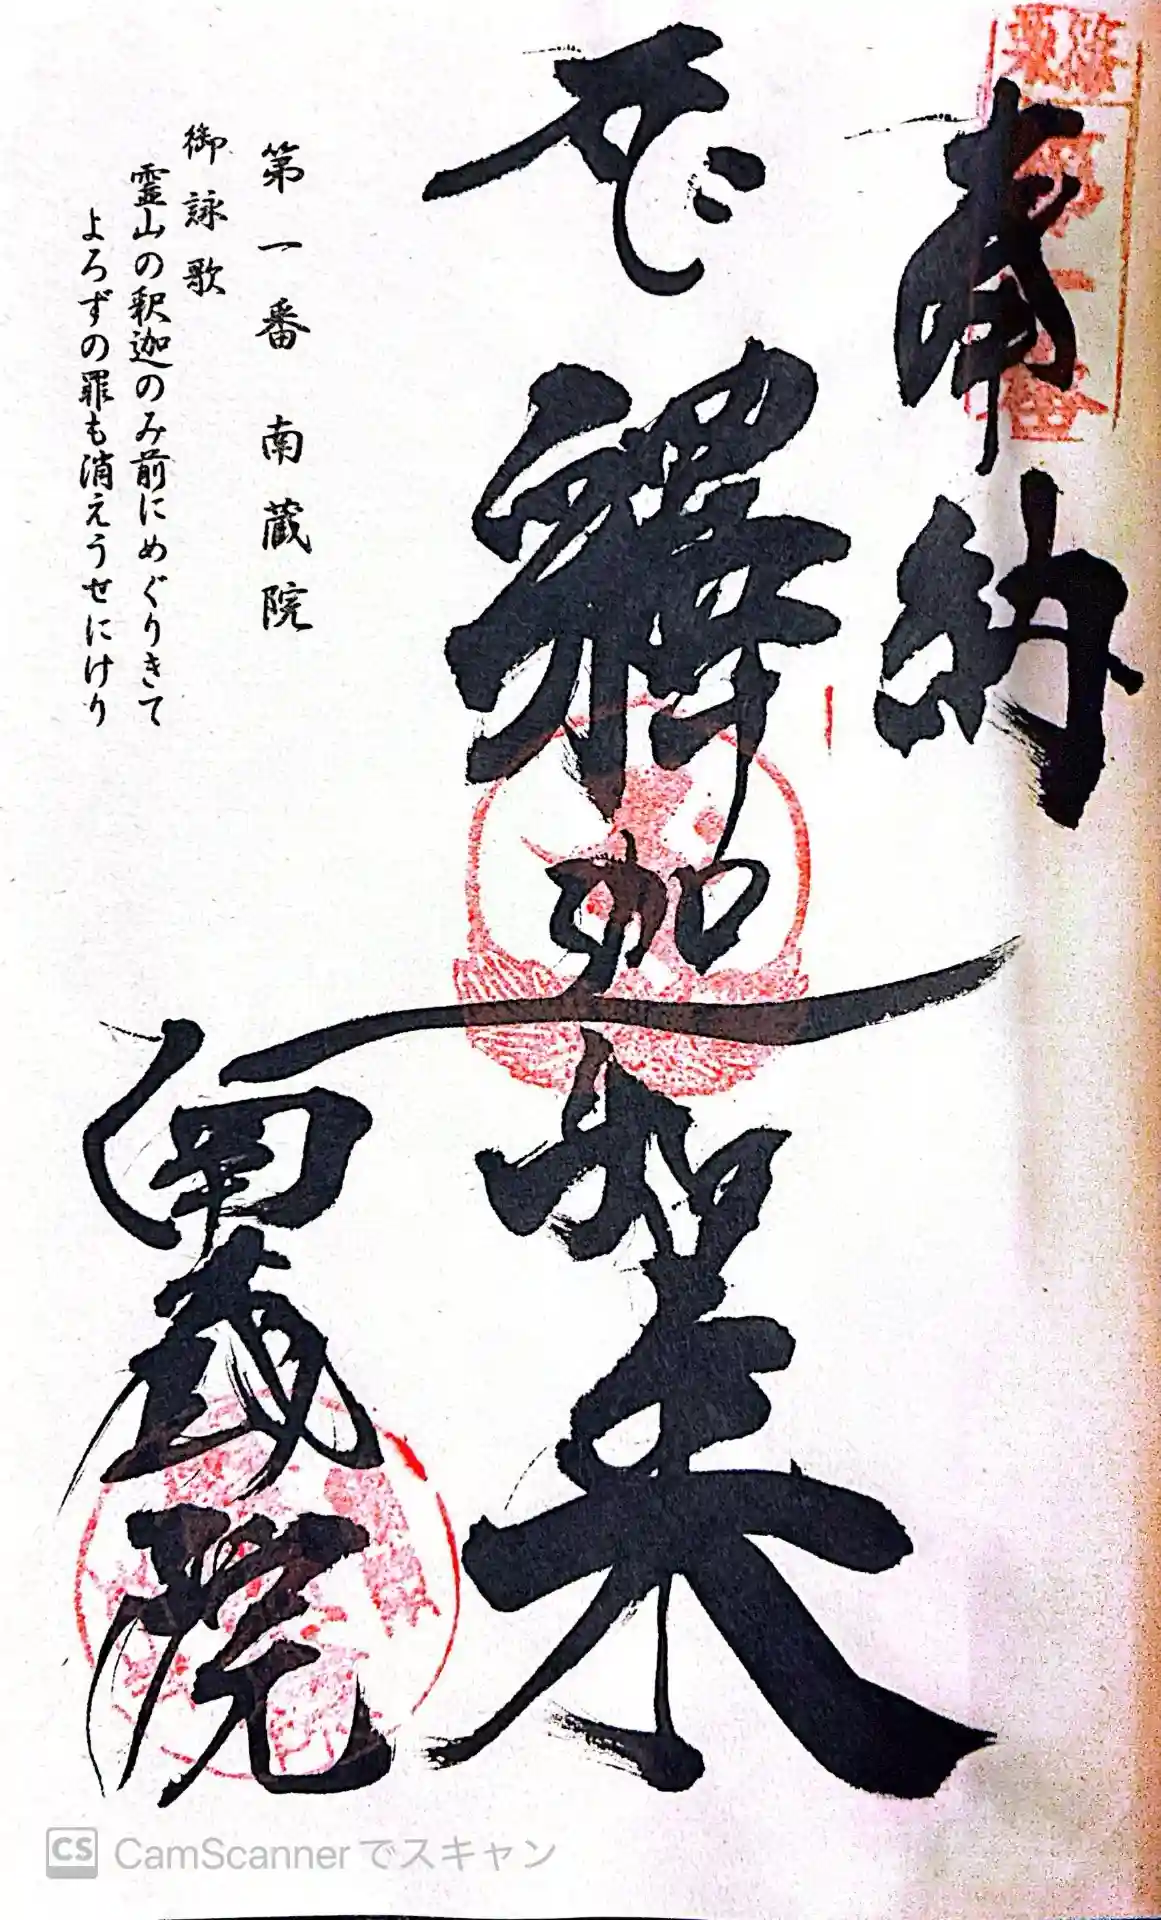 奉納
釋迦如来
南蔵院
第一番 南蔵院
御詠歌
霊山の釈迦のみ前にめぐりきて
よろずの罪も消えうせにけり
篠栗
第一番
CS CamScannerでスキャン